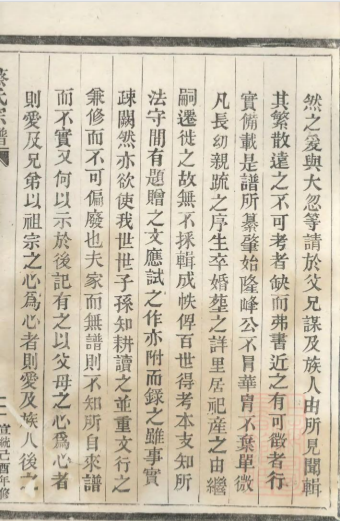 然之愛與大忽等請於父兄謀及族人由所見聞輯
其繁散遠之不可考者缺而弗書近之有可徵者行
實備載是譜所纂肇始隆峰公不冐華胄不棄單微
凡長幼親疏之序生卒婚塟之詳里居祀產之由繼
嗣遷徙之故無不採輯成帙俾百世得考本支知所
法守間有題贈之文應試之作亦附而錄之雖事實
疎闕然亦欲使我世世子孫知耕讀之並重文行之
兼修而不可偏廢也夫家而無譜則不知所自來譜
而不實又何以示於後記有之以父母之心為心者
則愛及兄弟以祖宗之心為心者則愛及族人後之
蔡氏宗譜
宣統己酉年修